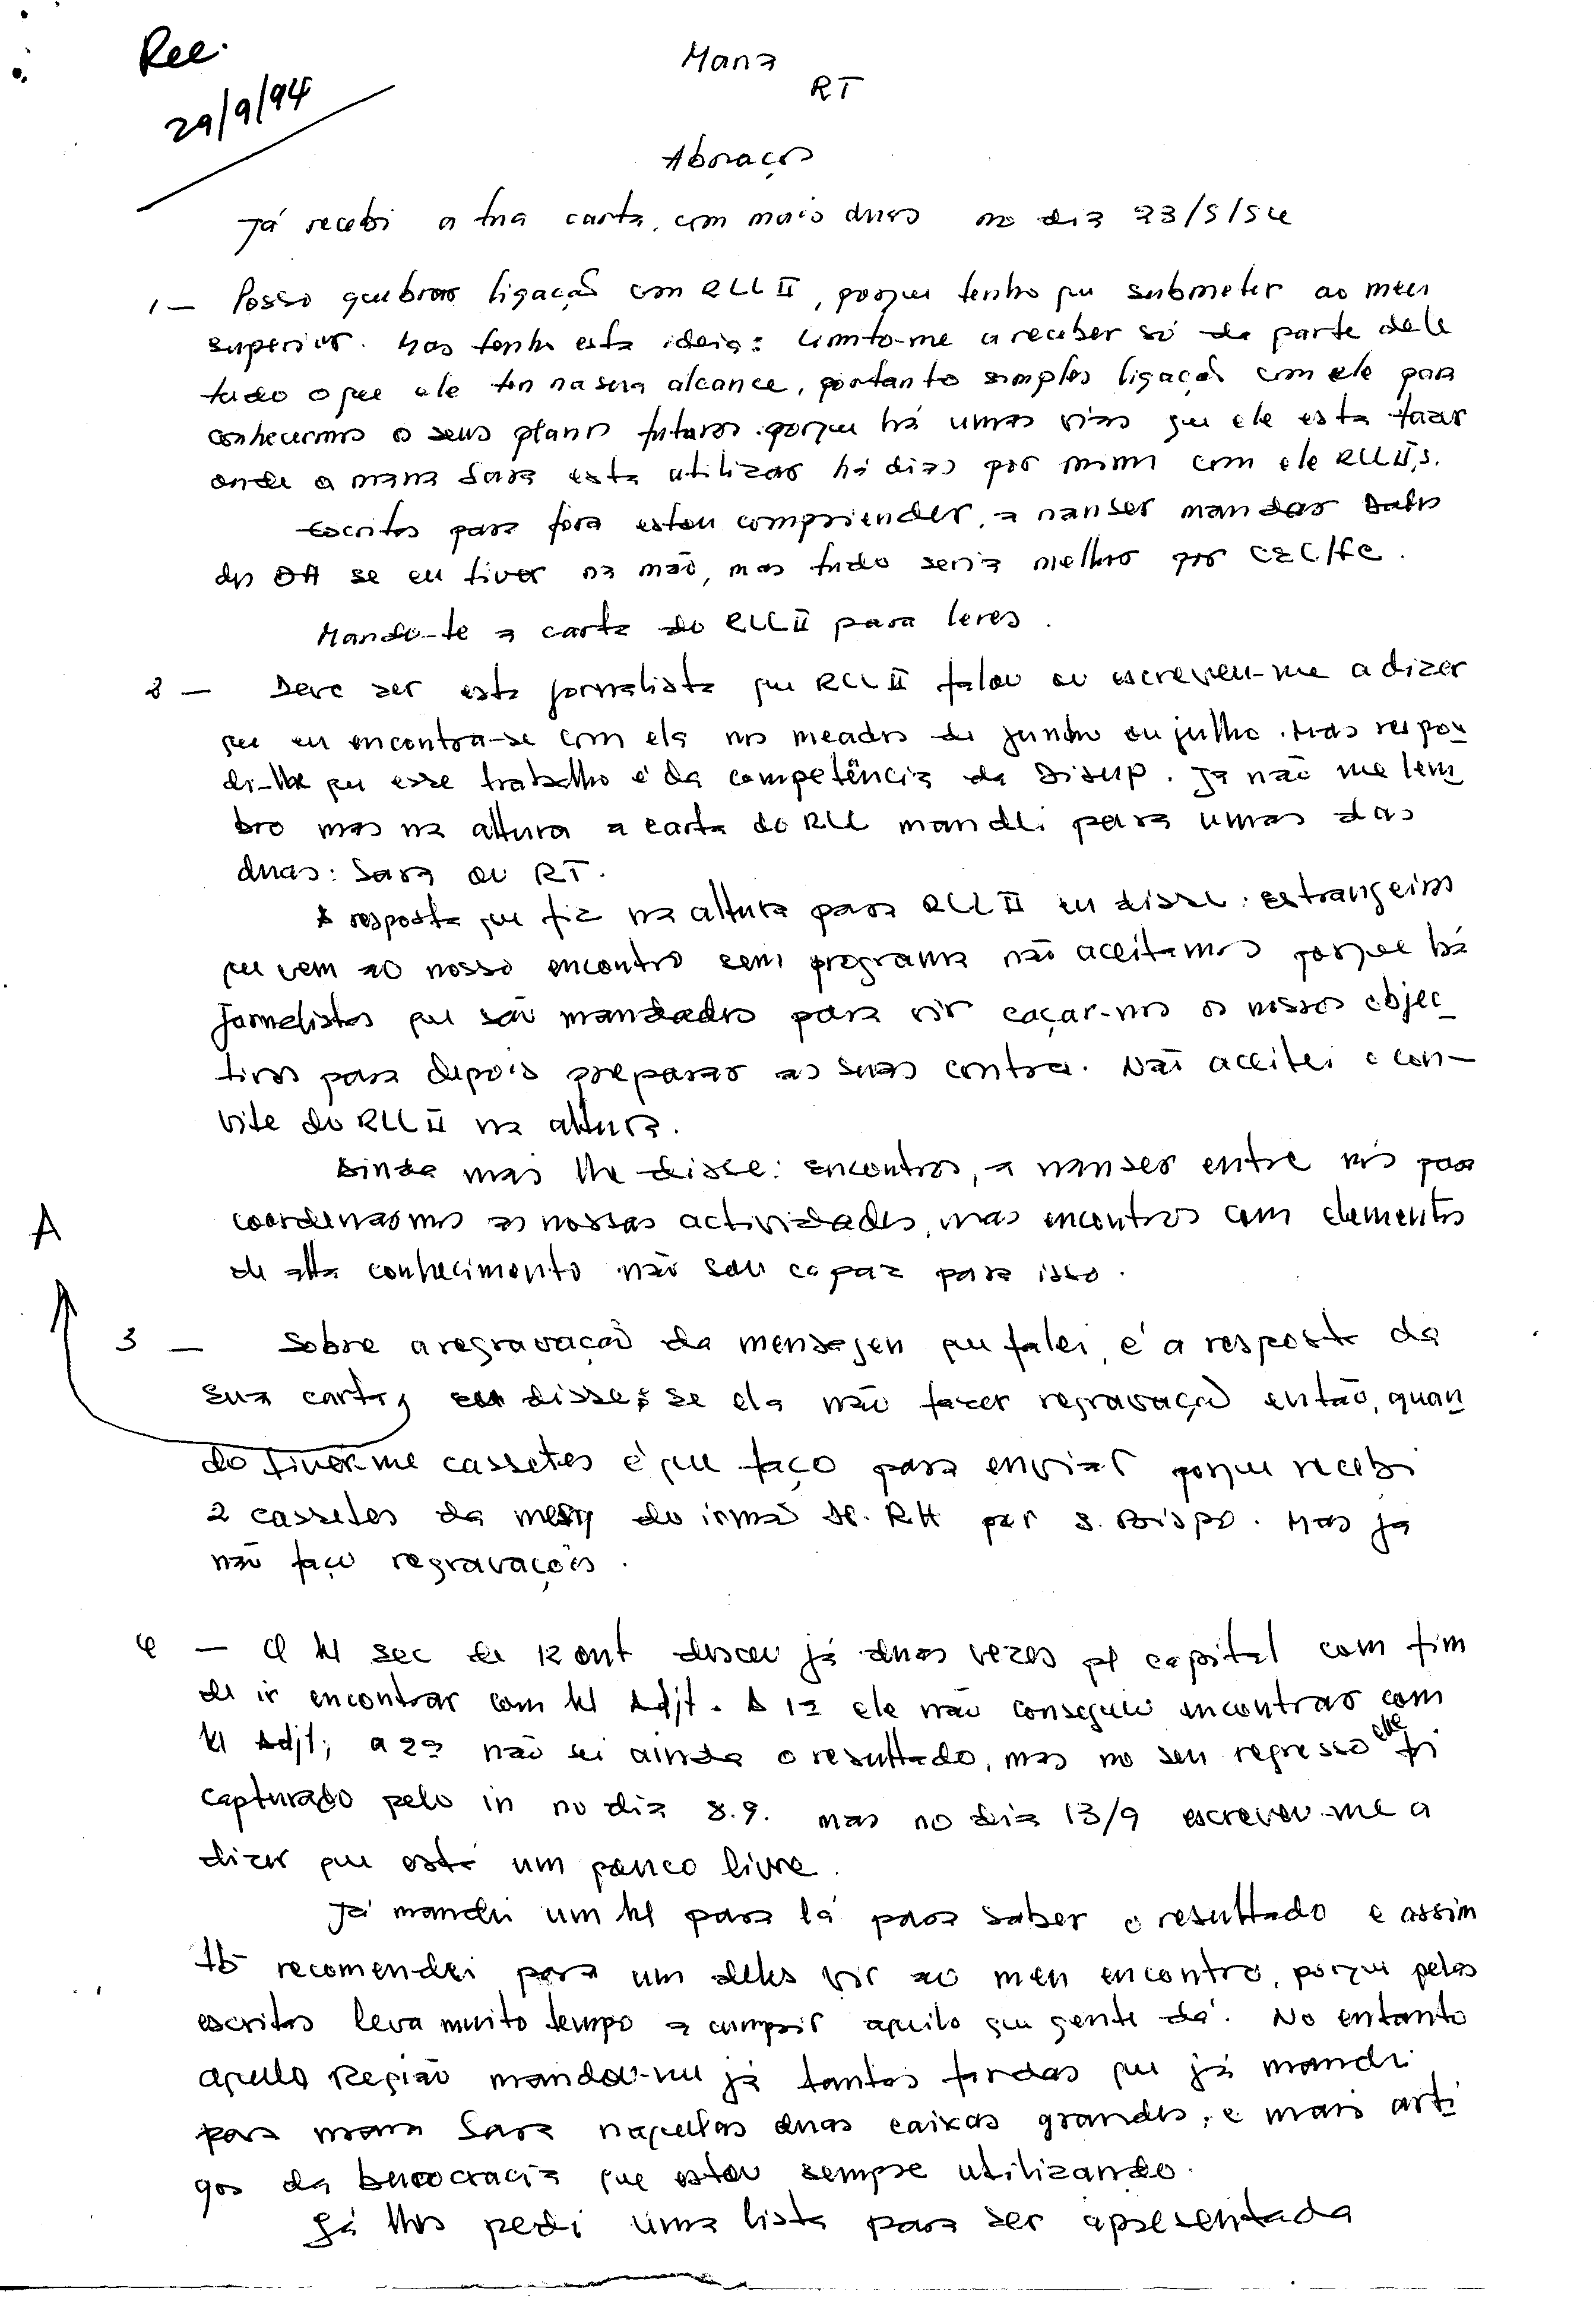 Rec.
29/9/94
Mana
RT
Abraços
Já recebi a tua carta, com mais duas no dia 23/9/94
1 — Posso quebrar ligação com RLL II, porque tenho que submeter ao meu
superior. Mas tenho esta ideia: limito-me a receber só da parte dele
tudo o que ele ten na sua alcance, portanto simples ligação com ele para
conhecermos os seus planos futuros porque há umas vias que ele esta fazer
onde a mana Sara esta utilizar há dias por mim com ele RLL II,s.
Escritos para fora estou compriender, a nanser mandar dados
dos DA se eu tiver na mão, mas tudo seria melhor por
Mando-te a carta do RLL II para leres.
2 — Deve ser esta jornalista que RLL II falou ou escreveu-me a dizer
que eu encontra-se com ela nos meados de junho ou julho. Mas respon
di-lhe que esse trabalho é da competência da Disup. Já não me lem
bro mas na altura a carta do RLL mandei para umas das
duas: Sara ou RT.
A resposta que fiz na altura para RLL II eu disse: estrangeiros
que vem ao nosso encontro sem programa não aceitamos porque há
jornalistas que são mandados para vir caçar-nos os nossos objec
tivos para depois preparar as suas contra. Não aceitei o con-
vite do RLL II na altura.
Ainda mais lhe disse: encontros, a nanser entre nós para
coordenarmos as nossas actividades, mas encontros com elementos
de alta conhecimento não sou capaz para isso.
A
3 — Sobre a regravação da mensagen que falei, é a resposta da
sua carta, eu disse: se ela não fazer regravação então, quan
do tiver-me cassetes é que faço para enviar porque recebi
2 cassetes da mesg do irmão RH por S. Bispo. Mas já
não faço regravações.
4 — O sec de Kont desceu já duas vezes pª capital com fim
de ir encontrar com Adjt. A 1ª ele não conseguiu encontrar com
Adjt; a 2ª não sei ainda o resultado, mas no seu regresso ele foi
capturado pelo in no dia 8.9. mas no dia 13/9 escreveu-me a
dizer que está um pouco livre.
Já mandei um para lá para saber o resultado e assim
tb recomendei para um deles vir ao meu encontro, porque pelos
escritos leva muito tempo a cumprir aquilo que gente dá. No entanto
aquela Região mandou-me já tantas fardas que já mandei
para mana Sara naquelas duas caixas grandes, e mais arti
gos da burocracia que estou sempre utilizando.
Já lhes pedi uma lista para ser apresentada